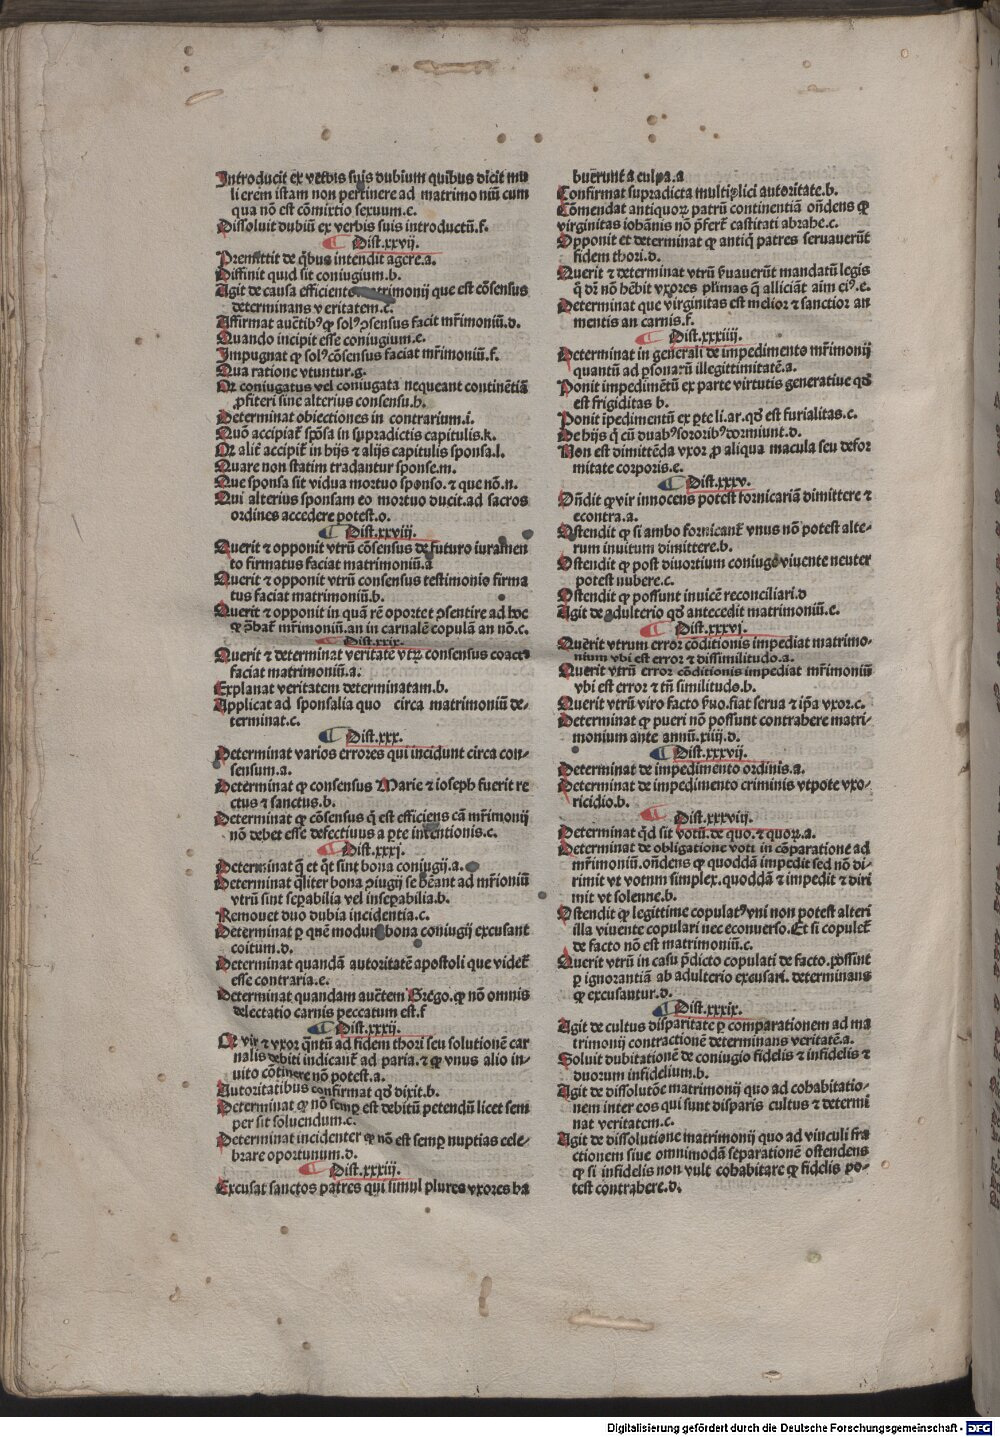 Introducit ex verbis suis dubium quibus dicit mu
li erem istam non pertinere ad matrimo niũ cum
qua nõ est cõmixtio sexuum.e.
Dissoluit dubiũ ex verbis suis introductũ.f.
¶ Dist.xxvij.
Premittit de q̃bus intendit agere.a.
Diffinit quid sit coniugium.b.
Agit de causa efficiente matrimonij que est cõsensus
determinans v eritatem.c.
Affirmat auctẽtibꝰ ꝙ solꝰ ↄsensus facit mr̃imoniũ.d.
Quando incipit esse coniugium.e.
Impugnat ꝙ solꝰ cõsensus faciat mr̃imoniũ.f.
Qua ratione vtuntur.g.
Qr coniugatus vel coniugata nequeant continẽtiã
ꝓfiteri sine alterius consensu.h.
Determinat obiectiones in contrarium.i.
Quõ accipiat̃ spõsa in supradictis capitulis.k.
Qr alit̃ accipit̃ in hijs ⁊ alijs capitulis sponsa.l.
Quare non statim tradantur sponse.m.
Que sponsa sit vidua mortuo sponso. ⁊ que nõ.n.
Qui alterius sponsam eo mortuo ducit.ad sacros
ordines accedere potest.o.
¶ Dist.xxviij.
Querit ⁊ opponit vtrũ cõsensus de futuro iuramen
to firmatus faciat matrimoniũ.a
Querit ⁊ opponit vtrũ consensus testimonio firma
tus faciat matrimoniũ.b.
Querit ⁊ opponit in quã rẽ oportet ↄsentire ad hoc
ꝙ ꝓbat̃ mr̃imoniũ.an in carnalẽ copulã an nõ.c.
Dist.xxix.
Querit ⁊ determinat veritatẽ vtꝝ consensus coact⁹
faciat matrimoniũ.a.
Explanat veritatem determinatam.b.
Applicat ad sponsalia quo circa matrimoniũ de-
terminat.c.
¶ Dist.xxx.
Determinat varios errores qui incidunt circa con-
sensum.a.
Determinat ꝙ consensus Marie ⁊ ioseph fuerit re
ctus ⁊ sanctus.b.
Determinat ꝙ cõsensus q̃ est efficiens cã mr̃imonij
nõ debet esse defectiuus a ꝑte intentionis.c.
¶ Dist.xxxj.
Determinat q̃ et q̃t sunt bona coniugij.a.
Determinat q̃liter bona ↄiugij se hẽant ad mr̃ioniũ
vtrũ sint seꝑabilia vel inseꝑabilia.b.
Remouet duo dubia incidentia.c.
Determinat ꝑ quẽ modum bona coniugij excusant
coitum.d.
Determinat quandã autoritatẽ apostoli que videt̃
esse contraria.e.
Determinat quandam auctẽm Grego.ꝙ nõ omnis
delectatio carnis peccatum est.f
¶ Dist.xxxij.
Qr vir ⁊ vxor q̃ntũ ad fidem thori seu solutionẽ car
nalis debiti indicant̃ ad paria.⁊ ꝙ vnus alio in-
uito cõtinere nõ potest.a.
Autoritatibus confirmat qđ dixit.b.
Determinat ꝙ nõ semꝑ est debitũ petendũ licet sem
per sit soluendum.c.
Determinat incidenter ꝙ nõ est semꝑ nuptias cele-
brare oportunum.d.
¶ Dist.xxxiij.
Excusat sanctos patres qui simul plures vxores ha
buerunt a culpa.a
Confirmat supradicta multiplici autoritate.b.
Cõmendat antiquoꝝ patrũ continentiã oñdens ꝙ
virginitas iohãnis nõ p̃fert̃ castitati abrahe.c.
Opponit et determinat ꝙ antiq̃ patres seruauerũt
fidem thori.d.
Querit ⁊ determinat vtrũ ẜuauerũt mandatũ legis
q̃ dr̃ nõ hẽbit vxores plr̃imas q̃ alliciãt aim eiꝰ.e.
Determinat que virginitas est melior ⁊ sanctior an
mentis an carnis.f.
¶ Dist.xxxiiij.
Determinat in generali de impedimento mr̃imonij
quantũ ad ꝑsonarũ illegittimitatẽ.a.
Ponit impedimẽtũ ex parte virtutis generatiue qđ
est frigiditas b.
Ponit ipedimentũ ex ꝑte li.ar.qđ est furialitas.c.
De hijs q̃ cũ duabꝰ sororibꝰ dormiunt.d.
Non est dimittẽda vxor ꝓ aliqua macula seu defor
mitate corporis.e.
¶ Dist.xxxv.
Oñdit ꝙ vir innocens potest fornicariã dimittere ⁊
econtra.a.
Ostendit ꝙ si ambo fornicant̃ vnus nõ potest alte-
rum inuitum dimittere.b.
Ostendit ꝙ post diuortium coniuge viuente neuter
potest nubere.c.
Ostendit ꝙ possunt inuicẽ reconciliari.d
Agit de adulterio qđ antecedit matrimoniũ.e.
¶ Dist.xxxvj.
Querit vtrum error cõditionis impediat matrimo-
nium vbi est error ⁊ dissimilitudo.a.
Querit vtrũ error cõditionis impediat mr̃imoniũ
vbi est error ⁊ tñ similitudo.b.
Querit vtrũ viro facto ẜuo.fiat serua ⁊ ip̃a vxor.c.
Determinat ꝙ pueri nõ possunt contrahere matri-
monium ante annũ.xiiij.d.
¶ Dist.xxxvij.
Determinat de impedimento ordinis.a.
Determinat de impedimento criminis vtpote vxo-
ricidio.b.
¶ Dist.xxxviij.
Determinat q̃d sit votũ.de quo.⁊ quoꝝ.a.
Determinat de obligatione voti in cõparatione ad
mr̃imoniũ.oñdens ꝙ quoddã impedit sed nõ di-
rimit vt votum simplex.quoddã ⁊ impedit ⁊ diri
mit vt solenne.b.
Ostendit ꝙ legittime copulatꝰ vni non potest alteri
illa viuente copulari nec econuerso.Et si copulet̃
de facto nõ est matrimoniũ.c.
Querit vtrũ in casu p̃dicto copulati de facto.possint
ꝑ ignorantiã ab adulterio excusari. determinans
ꝙ excusantur.d.
¶ Dist.xxxix.
Agit de cultus disparitate ꝑ comparationem ad ma
trimonij contractionẽ determinans veritatẽ.a.
Soluit dubitationẽ de coniugio fidelis ⁊ infidelis ⁊
duorum infidelium.b.
Agit de dissolutõe matrimonij quo ad cohabitatio-
nem inter eos qui sunt disparis cultus ⁊ determi
nat veritatem.c.
Agit de dissolutione matrimonij quo ad vinculi fra
ctionem siue omnimodã separationẽ ostendens
ꝙ si infidelis non vult cohabitare ꝙ fidelis po-
test contrahere.d.
Digitalisierung gefördert durch die Deutsche Forschungsgemeinschaft - DFG